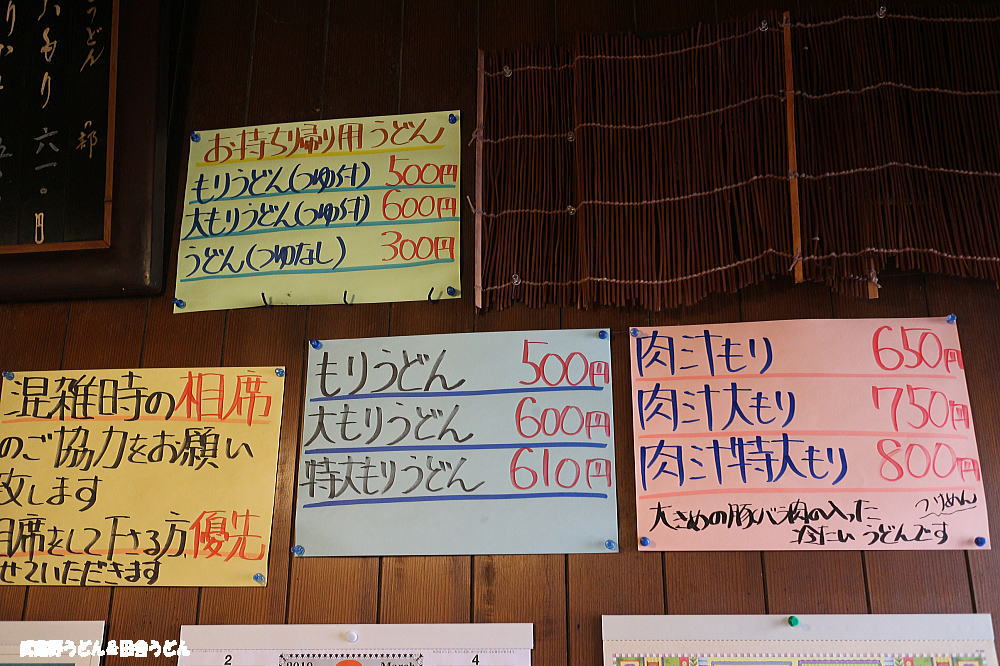 うどん
大もり 六一〇円
一部
お持ち帰り用うどん
もりうどん(つゆ付) 500円
大もりうどん(つゆ付) 600円
うどん(つゆなし) 300円
混雑時の相席
のご協力をお願い
致します
相席をして下さる方、優先
せていただきます
もりうどん 500円
大もりうどん 600円
特大もりうどん 610円
肉汁もり 650円
肉汁大もり 750円
肉汁特大もり 800円
大きめの豚バラ肉の入った つけめん
冷たい うどんです
2
2019
March
4
武蔵野うどん&田舎うどん